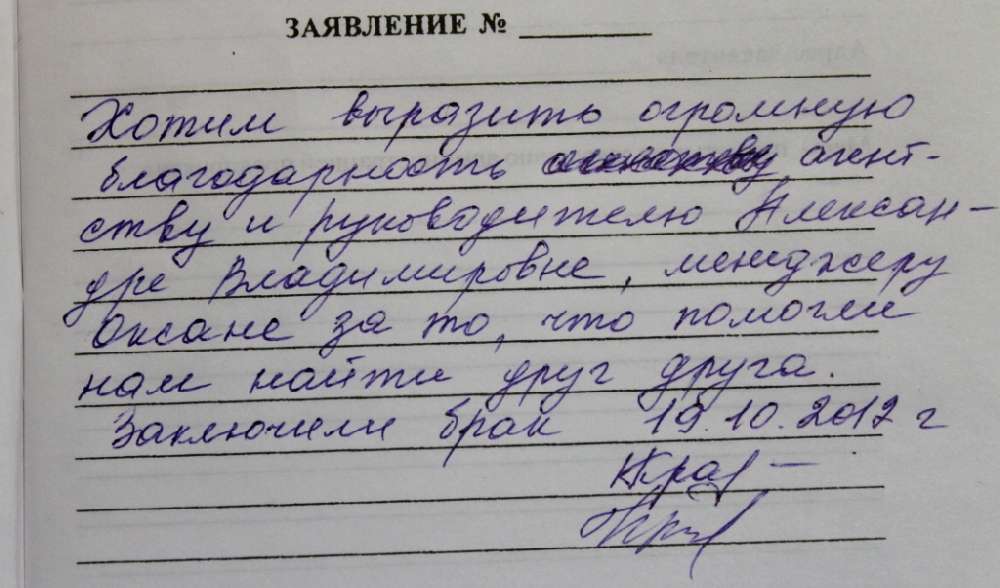 ЗАЯВЛЕНИЕ № ________
Хотим выразить огромную
благодарность агент-
ству и руководителю Алексан-
дре Владимировне, менеджеру
Оксане за то, что помогли
нам найти друг друга.
Заключили брак 19.10.2012 г